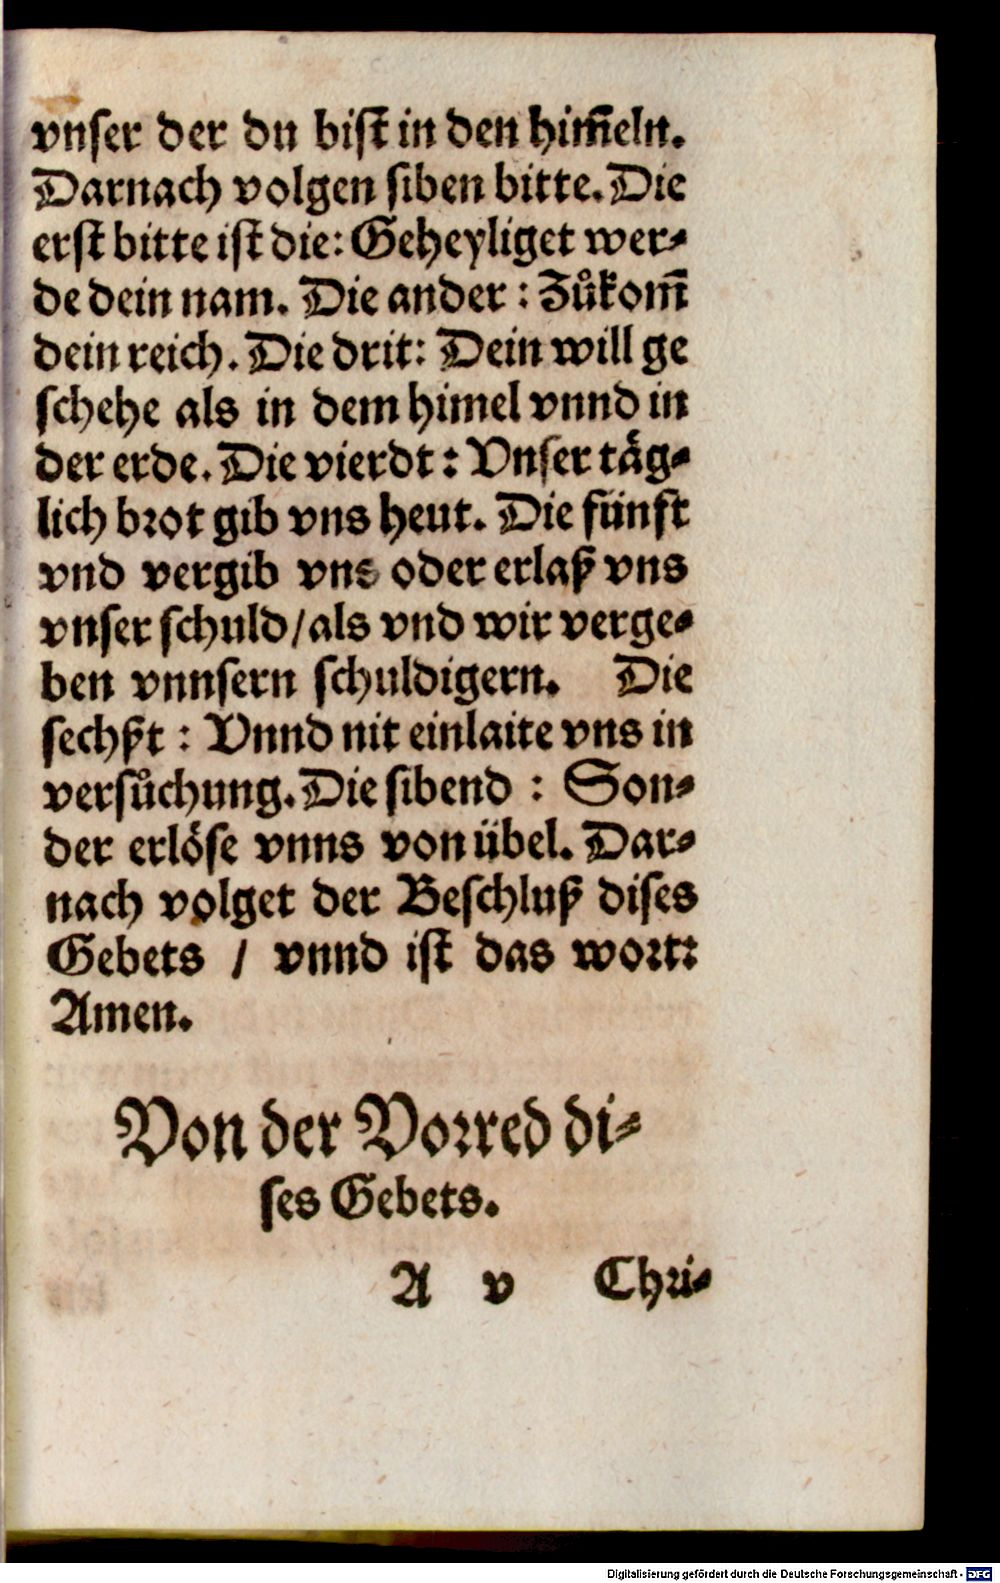 vnser der du bist in den him̅eln.
Darnach volgen siben bitte. Die
erst bitte ist die: Geheyliget wer⸗
de dein nam. Die ander: Zůkom̅
dein reich. Die drit: Dein will ge
schehe als in dem himel vnnd in
der erde. Die vierdt: Vnser täg⸗
lich brot gib vns heut. Die fünft
vnd vergib vns oder erlaß vns
vnser schuld/als vnd wir verge⸗
ben vnnsern schuldigern. Die
sechßt: Vnnd nit einlaite vns in
versůchung. Die sibend: Son⸗
der erlöse vnns von übel. Dar⸗
nach volget der Beschluß dises
Gebets / vnnd ist das wort:
Amen.
Von der Vorred di⸗
ses Gebets.
A v Chri⸗
Digitalisierung gefördert durch die Deutsche Forschungsgemeinschaft - DFG